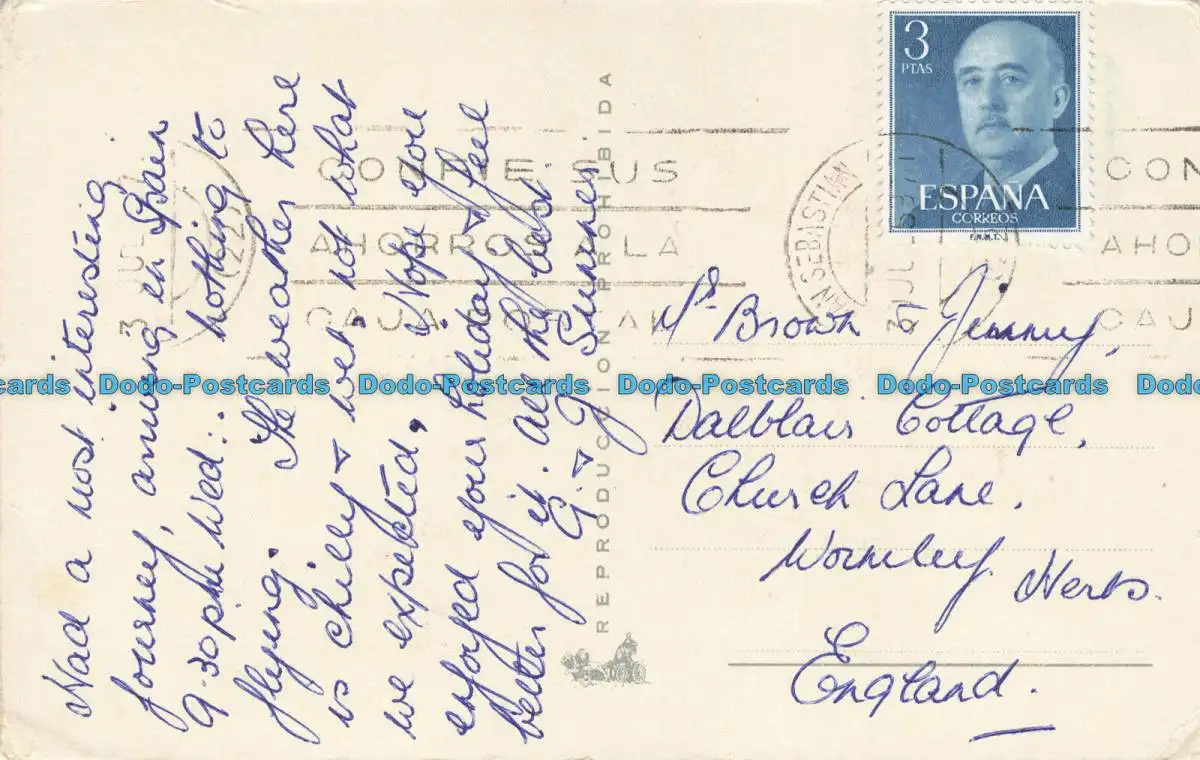 Had a most interesting
journey, arriving in Spain
9.30pm Wed:. nothing to
flying. The weather here
is chilly & wet, not what
we expected, Hope you
enjoyed your holiday & feel
better for it. All the best
G & J Sumner
REPRODUCCION PROHIBIDA
3
PTAS
ESPAÑA
CORREOS
F.N.M.T.
SAN SEBASTIAN
CON
AHO
CAJ
SUS
AHORROS LA
CAJA
Brown & Jimmy,
Dalblair Cottage,
Church Lane.
Wormley. Herts.
England.
Dodo-Postcards Dodo-Postcards Dodo-Postcards Dodo-Postcards